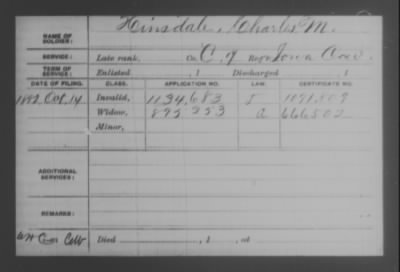 NAME OF SOLDIER: Hinsdale, Charles M.
SERVICE: Late rank, Co. C, 9 Reg't Iowa Cav.
TERM OF SERVICE: Enlisted , 1 Discharged , 1
DATE OF FILING. CLASS. APPLICATION NO. LAW. CERTIFICATE NO.
1892, Oct, 14 Invalid, 1134,683 1091,809
Widow, 895,253 a 666502
Minor,
ADDITIONAL SERVICES:
REMARKS:
Died , 1 , at